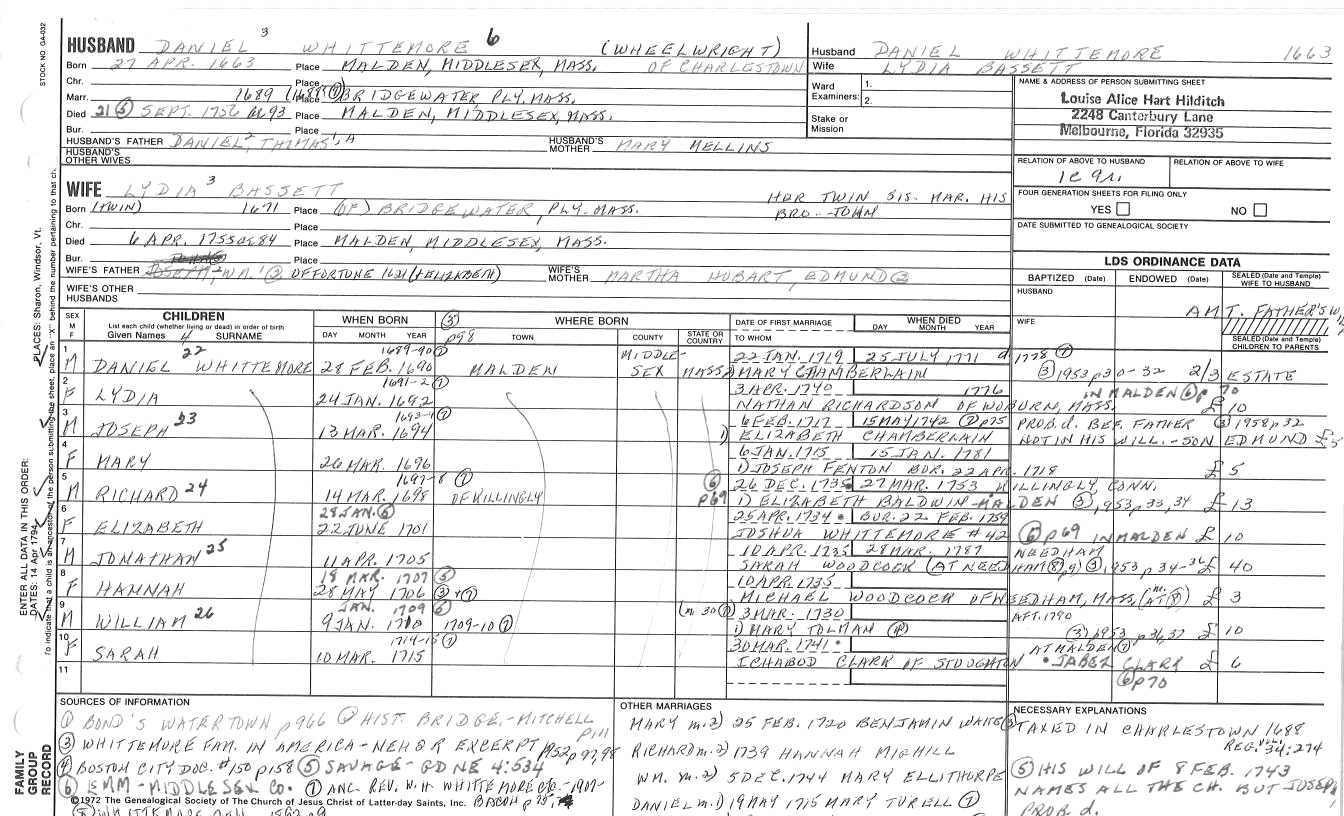 STOCK NO. GA-032
HUSBAND DANIEL 3 WHITTEMORE 6 (WHEELWRIGHT)
Born 27 APR. 1663 Place MALDEN, MIDDLESEX, MASS. OF CHARLESTOWN
Chr. Place
Marr. 1689 Place BRIDGEWATER PLY. MASS.
Died 21 (5) SEPT. 1756 Place MALDEN, MIDDLESEX, MASS.
Bur. Place
HUSBAND'S FATHER DANIEL 2, THOMAS 1, A HUSBAND'S MOTHER MARY MELLINS
HUSBAND'S OTHER WIVES
Husband DANIEL WHITTEMORE 1663
Wife LYDIA BASSETT
Ward Examiners: 1.
2.
Stake or Mission
NAME & ADDRESS OF PERSON SUBMITTING SHEET
Louise Alice Hart Hilditch
2248 Canterbury Lane
Melbourne, Florida 32935
RELATION OF ABOVE TO HUSBAND RELATION OF ABOVE TO WIFE
FOUR GENERATION SHEETS FOR FILING ONLY
YES NO
DATE SUBMITTED TO GENEALOGICAL SOCIETY
WIFE LYDIA 3 BASSETT HER TWIN SIS. MAR. HIS
Born (TWIN) 1671 Place (OF) BRIDGEWATER, PLY. MASS. BRO. - JOHN
Chr. Place
Died 6 APR. 1755 ae 84 Place MALDEN, MIDDLESEX, MASS.
Bur. Place
WIFE'S FATHER WM. 1 (3) OF FORTUNE 1621 (+ELIZABETH) WIFE'S MOTHER MARTHA HOBART, EDMUND (2)
WIFE'S OTHER HUSBANDS
LDS ORDINANCE DATA
BAPTIZED (Date) ENDOWED (Date) SEALED (Date and Temple) WIFE TO HUSBAND
HUSBAND
WIFE
AMT. FATHER'S
SEALED (Date and Temple) CHILDREN TO PARENTS
SEX M F CHILDREN List each child (whether living or dead) in order of birth Given Names 4 SURNAME
WHEN BORN DAY MONTH YEAR
(3) p98 WHERE BORN TOWN COUNTY STATE OR COUNTRY
DATE OF FIRST MARRIAGE TO WHOM
WHEN DIED DAY MONTH YEAR
1 M DANIEL 22 WHITTEMORE 1689-90 (1) 28 FEB. 1690 MALDEN MIDDLESEX MASS 22 JAN. 1719 25 JULY 1771 d 1778 (7)
MARY CHAMBERLAIN (3) 1953 p30-32 2/3 ESTATE
2 F LYDIA 1691-2 (1) 24 JAN. 1692 3 APR. 1740 1776 IN MALDEN (6) p 70
NATHAN RICHARDSON OF WOBURN, MASS. £ 10
3 M JOSEPH 23 13 MAR. 1694 6 FEB. 1717 15 MAY 1742 (2) p75 PROB. d. BEF. FATHER (3) 1958 p32
1) ELIZABETH CHAMBERLAIN NOT IN HIS WILL. - SON EDMUND £5
4 F MARY 26 MAR. 1696 6 JAN. 1715 15 JAN. 1781
1) JOSEPH FENTON BUR. 22 APR. 1718 £ 5
5 M RICHARD 24 1697-8 (1) 14 MAR. 1698 OF KILLINGLY (6) p69 26 DEC. 1735 27 MAR. 1753 KILLINGLY, CONN.
1) ELIZABETH BALDWIN - MALDEN (3), 1953 p33,34 £ 13
6 F ELIZABETH 28 JAN. (6) 22 JUNE 1701 25 APR. 1734 BUR. 22 FEB. 1759
JOSHUA WHITTEMORE #42 (6) p69 IN MALDEN £ 10
7 M JONATHAN 25 11 APR. 1705 10 APR. 1735 28 MAR. 1787 NEEDHAM
SARAH WOODCOCK (AT NEEDHAM (8) p9) (3), 1953 p34-36 £ 40
8 F HANNAH 18 MAR. 1707 (5) 28 MAY 1706 (3)+(7) 10 APR. 1735
MICHAEL WOODCOCK OF NEEDHAM, MASS. £ 3
9 M WILLIAM 26 JAN. 1709 (6) 9 JAN. 1710 1709-10 (1) (m. 30 (7)) 3 MAR. 1730 AFT. 1790
1) MARY TOLMAN (4) (3) p1953 p36,37 £ 10
10 F SARAH 1714-15 (1) 10 MAR. 1715 30 MAR. 1741 AT MALDEN (7)
ICHABOD CLARK OF STOUGHTON • JABEZ CLARK £ 6
11 (6) p70
SOURCES OF INFORMATION
(1) BOND'S WATERTOWN p966 (2) HIST. BRIDGE. - MITCHELL p111
(3) WHITTEMORE FAM. IN AMERICA - NEHGR EXCERPT 1952 p97,98
(4) BOSTON CITY DOC. #150 p158 (5) SAVAGE - GDNE 4:534
(6) EMM - MIDDLESEX CO. (7) ANC. REV. W.H. WHITTEMORE ETC. - 1907 -
©1972 The Genealogical Society of The Church of Jesus Christ of Latter-day Saints, Inc.
OTHER MARRIAGES
MARY m. 2) 25 FEB. 1720 BENJAMIN WAITE (3)
RICHARD m. 2) 1739 HANNAH MIGHILL
WM. m. 2) 5 DEC. 1744 MARY ELLITHORPE
DANIEL m. 1) 19 MAY 1715 MARY TURELL (7)
NECESSARY EXPLANATIONS
TAXED IN CHARLESTOWN 1688
REG. 34:274
(5) HIS WILL OF 8 FEB. 1743
NAMES ALL THE CH. BUT JOSEPH,
PROB d.
PLACES: Sharon, Windsor, Vt.
ENTER ALL DATA IN THIS ORDER:
DATES: 14 Apr 1794
FAMILY GROUP RECORD